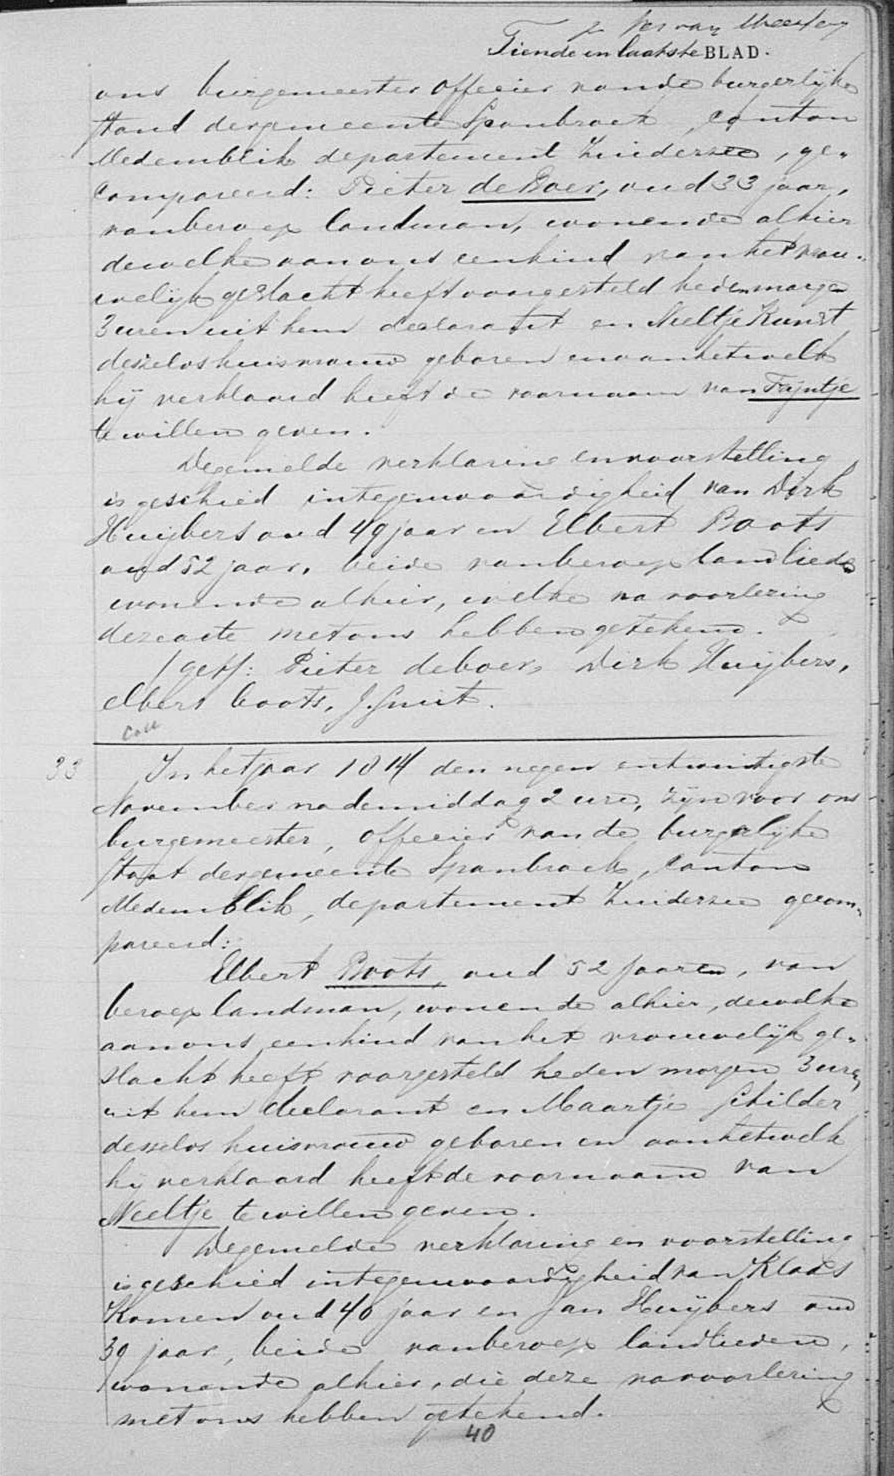 Tiende en laatste BLAD.
ons burgemeester offecier van de burgerlijke
staud der gemeente Spanbroek, canton
Medemblik departement Zuiderzee, ge-
compareerd: Pieter de Boer, oud 33 jaar,
van beroep landman, wonende alhier
dewelke aan ons een kind van het vrou-
welijk geslacht heeft voorgesteld heden morgen
3 uren uit hem declarant en Neeltje Kunst
deszelvs huisvrouw geboren en aan hetwelk
hij verklaard heeft de voornaam van Trijntje
te willen geven.
De gemelde verklaring en voorstelling
is geschied in tegenwoordigheid van Dirk
Huijbers oud 49 jaar en Elbert Boots
oud 52 jaar, beide van beroep landlieden
wonende alhier, welke na voorlezing
deze acte met ons hebben getekend.
/get/: Pieter de boer, Dirk Huijbers,
elbert boots, J. Smit.
Coll
33 In het jaar 1814 den negen entwintigste
November na de middag 2 ure, zijn voor ons
burgemeester, offecier van de burgerlijke
staat der gemeente Spanbroek, canton
Medemblik, departement Zuiderzee gecom-
pareerd:
Elbert Boots, oud 52 jaaren, van
beroep landman, wonende alhier, dewelke
aan ons een kind van het vrouwelijk ge-
slacht heeft voorgesteld heden morgen 3 uren
uit hem declarant en Maartje Schilder
deszelvs huisvrouw geboren en aan hetwelk
hij verklaard heeft de voornaam van
Neeltje te willen geven.
De gemelde verklaring en voorstelling
is geschied in tegenwoordigheid van Klaas
Komen oud 40 jaar en Jan Huijbers oud
39 jaar, beide van beroep landlieden,
wonende alhier, die deze na voorlezing
met ons hebben getekend.
40